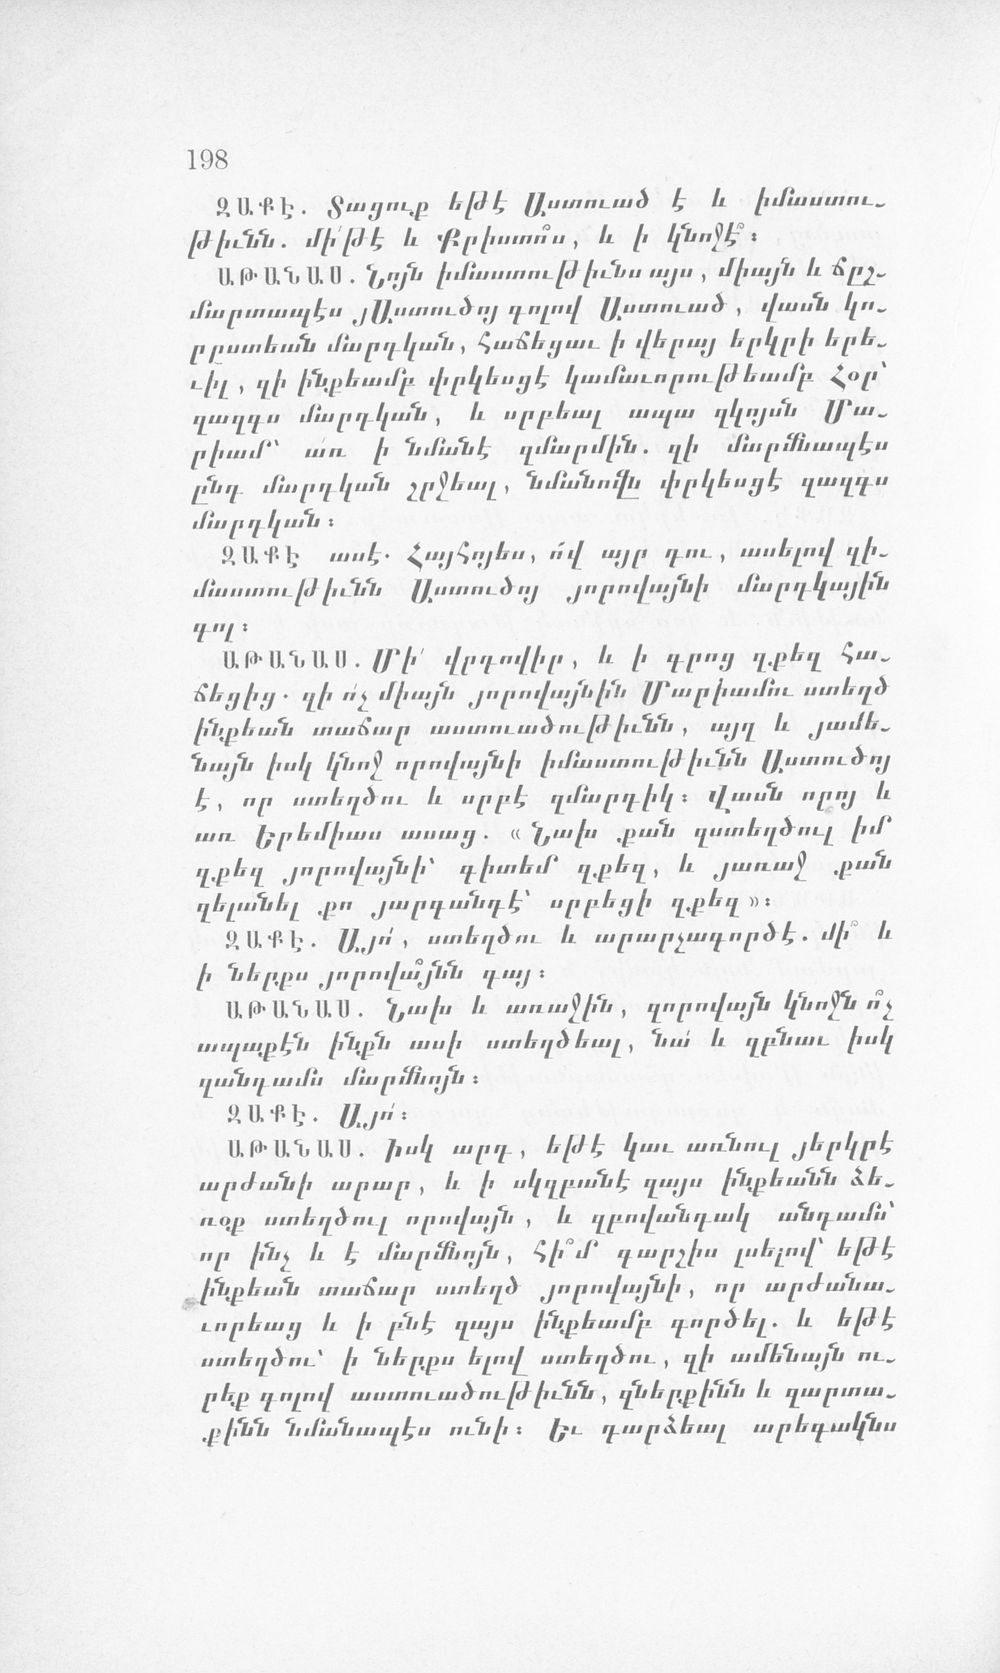 198
ԶԱՔԷ. Տացուք եթէ Աստուած է և իմաստու-
թիւնն. մի՛թէ և Քրիստո՞ս, և ի կնոջէ՞։
ԱԹԱՆԱՍ. Նոյն իմաստութիւնս այս, միայն և ճըշ-
մարտապէս յԱստուծոյ գոլով Աստուած, վասն կո-
րըստեան մարդկան, հաճեցաւ ի վերայ երկրի երե-
ւիլ, զի ինքեամբ փրկեսցէ կամաւորութեամբ Հօր՝
զազգս մարդկան, և սրբեալ ապա զկոյսն Մա-
րիամ՝ առ ի նմանէ զմարմին. զի մարմնապէս
ընդ մարդկան շրջեալ, նմանովն փրկեսցէ զազգս
մարդկան։
ԶԱՔԷ ասէ. Հայհոյես, ո՛վ այր դու, ասելով զի-
մաստութիւնն Աստուծոյ յորովայնի մարդկային
գոլ։
ԱԹԱՆԱՍ. Մի՛ վրդովիր, և ի գրոց զքեզ հա-
ճեցից. զի ո՛չ միայն յորովայնին Մարիամու ստեղծ
ինքեան տաճար աստուածութիւնն, այղ և յամե-
նայն իսկ կնոջ որովայնի իմաստութիւնն Աստուծոյ
է, որ ստեղծու և սրբէ զմարդիկ։ Վասն որոյ և
առ Երեմիաս ասաց. « Նախ քան զստեղծուլ իմ
զքեզ յորովայնի՝ գիտեմ զքեզ, և յառաջ քան
զելանել քո յարգանդէ՝ սրբեցի զքեզ »։
ԶԱՔԷ. Այո՛, ստեղծու և արարչագործէ. մի՞ և
ի ներքս յորովա՞յնն գայ։
ԱԹԱՆԱՍ. Նախ և առաջին, զորովայն կնոջն ո՞չ
ապաքէն ինքն ասի ստեղծեալ, նա՛ և զբնաւ իսկ
զանդամս մարմնոյն։
ԶԱՔԷ. Այո՛։
ԱԹԱՆԱՍ. Իսկ արդ, եթէ կաւ առնուլ յերկրէ
արժանի արար, և ի սկզբանէ զայս ինքեանն ձե-
ռօք ստեղծուլ որովայն, և զբովանդակ անդամս՝
որ ինչ և է մարմնոյն, հի՞մ գարշիս լսելով՝ եթէ
ինքեան տաճար ստեղծ յորովայնի, որ արժանա-
ւորեաց և ի բնէ զայս ինքեամբ գործել. և եթէ
ստեղծու՝ ի ներքս ելով ստեղծու, զի ամենայն ու-
րեք գոլով աստուածութիւնն, զներքինն և զարտա-
քինն նմանապէս ունի։ Եւ դարձեալ արեգակնս